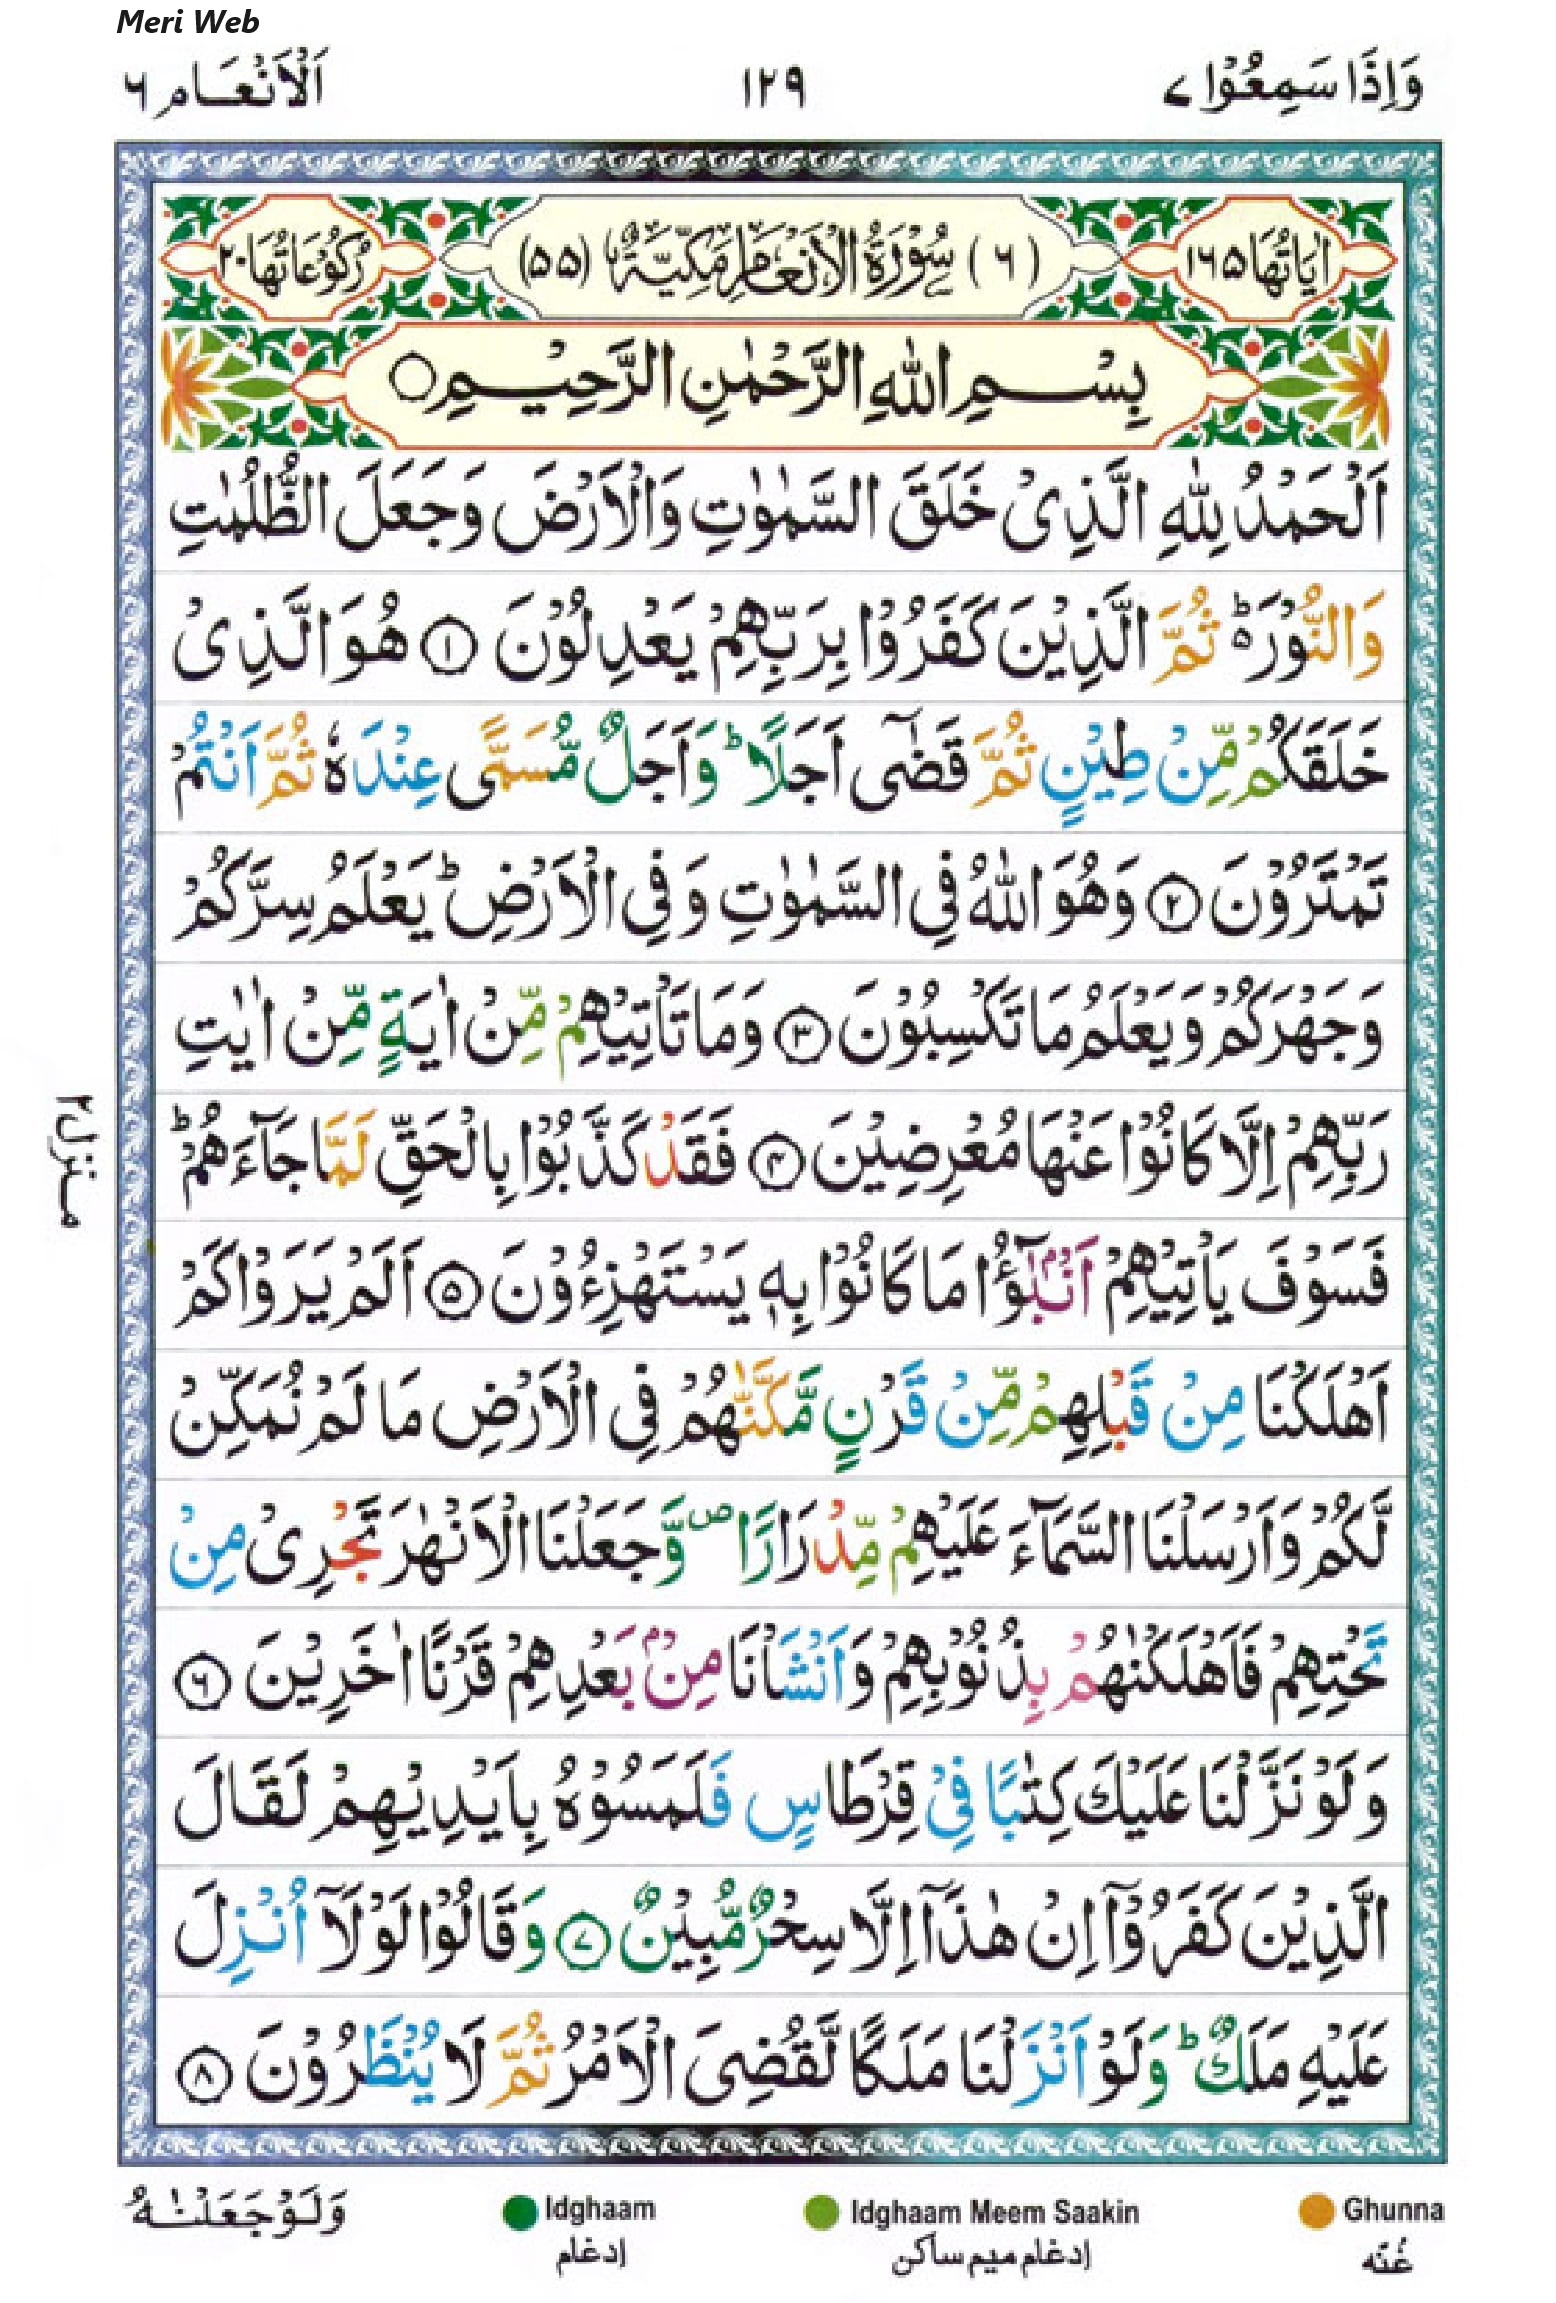 Meri Web
وَاِذَا سَمِعُوْا ۷ ۱۲۹ اَلْاَنْعَام ۶
اٰيَاتُهَا ۱۶۵ (۶) سُوْرَةُ الْاَنْعَامِ مَكِّيَّةٌ (۵۵) رُكُوْعَاتُهَا ۲۰
بِسْمِ اللّٰهِ الرَّحْمٰنِ الرَّحِيْمِ ○
اَلْحَمْدُ لِلّٰهِ الَّذِیْ خَلَقَ السَّمٰوٰتِ وَالْاَرْضَ وَجَعَلَ الظُّلُمٰتِ
وَالنُّوْرَ ؕ۬ ثُمَّ الَّذِيْنَ كَفَرُوْا بِرَبِّهِمْ يَعْدِلُوْنَ ۝۱ هُوَ الَّذِیْ
خَلَقَكُمْ مِّنْ طِيْنٍ ثُمَّ قَضٰۤی اَجَلًا ؕ وَاَجَلٌ مُّسَمًّی عِنْدَهٗ ثُمَّ اَنْتُمْ
تَمْتَرُوْنَ ۝۲ وَهُوَ اللّٰهُ فِی السَّمٰوٰتِ وَفِی الْاَرْضِ ؕ يَعْلَمُ سِرَّكُمْ
وَجَهْرَكُمْ وَيَعْلَمُ مَا تَكْسِبُوْنَ ۝۳ وَمَا تَاْتِيْهِمْ مِّنْ اٰيَةٍ مِّنْ اٰيٰتِ
رَبِّهِمْ اِلَّا كَانُوْا عَنْهَا مُعْرِضِيْنَ ۝۴ فَقَدْ كَذَّبُوْا بِالْحَقِّ لَمَّا جَآءَهُمْ ؕ
فَسَوْفَ يَاْتِيْهِمْ اَنْۢبٰٓؤُا مَا كَانُوْا بِهٖ يَسْتَهْزِءُوْنَ ۝۵ اَلَمْ يَرَوْا كَمْ
اَهْلَكْنَا مِنْ قَبْلِهِمْ مِّنْ قَرْنٍ مَّكَّنّٰهُمْ فِی الْاَرْضِ مَا لَمْ نُمَكِّنْ
لَّكُمْ وَاَرْسَلْنَا السَّمَآءَ عَلَيْهِمْ مِّدْرَارًا ۪ وَّجَعَلْنَا الْاَنْهٰرَ تَجْرِیْ مِنْ
تَحْتِهِمْ فَاَهْلَكْنٰهُمْ بِذُنُوْبِهِمْ وَاَنْشَاْنَا مِنْۢ بَعْدِهِمْ قَرْنًا اٰخَرِيْنَ ۝۶
وَلَوْ نَزَّلْنَا عَلَيْكَ كِتٰبًا فِیْ قِرْطَاسٍ فَلَمَسُوْهُ بِاَيْدِيْهِمْ لَقَالَ
الَّذِيْنَ كَفَرُوْۤا اِنْ هٰذَاۤ اِلَّا سِحْرٌ مُّبِيْنٌ ۝۷ وَقَالُوْا لَوْلَاۤ اُنْزِلَ
عَلَيْهِ مَلَكٌ ؕ وَلَوْ اَنْزَلْنَا مَلَكًا لَّقُضِیَ الْاَمْرُ ثُمَّ لَا يُنْظَرُوْنَ ۝۸
منزل ۲
وَلَوْ جَعَلْنٰهُ
Idghaam Idghaam Meem Saakin Ghunna
إدغام إدغام ميم ساكن غُنّه